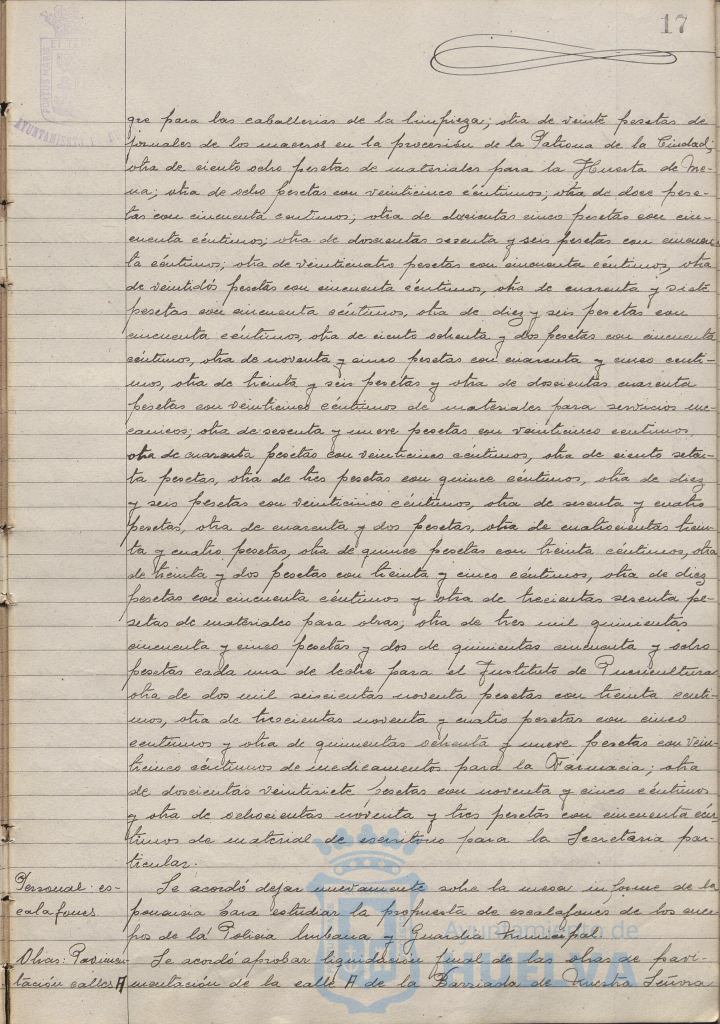 17
AYUNTAMIENTO
que para las caballerias de la limpieza; otra de veinte pesetas de
jornales de los maceros en la procesión de la Patrona de la Ciudad;
otra de ciento ocho pesetas de materiales para la Huerta de Me-
na; otra de ocho pesetas con veinticinco céntimos; otra de doce pese-
tas con cincuenta centimos; otra de doscientas cinco pesetas con cin-
cuenta céntimos; otra de doscientas sesenta y seis pesetas con cincuen-
ta céntimos; otra de veinticuatro pesetas con cincuenta céntimos, otra
de veintidós pesetas con cincuenta céntimos, otra de cuarenta y siete
pesetas con cincuenta céntimos, otra de diez y seis pesetas con
cincuenta céntimos, otra de ciento ochenta y dos pesetas con cincuenta
céntimos, otra de noventa y cinco pesetas con cuarenta y cinco centi-
mos, otra de treinta y seis pesetas y otra de doscientas cuarenta
pesetas con veinticinco céntimos de materiales para servicios me-
canicos; otra de sesenta y nueve pesetas con veinticinco centimos,
otra de cuarenta pesetas con veinticinco céntimos, otra de ciento seten-
ta pesetas, otra de tres pesetas con quince céntimos, otra de diez
y seis pesetas con veinticinco céntimos, otra de sesenta y cuatro
pesetas, otra de cuarenta y dos pesetas, otra de cuatrocientas trein-
ta y cuatro pesetas, otra de quince pesetas con treinta céntimos, otra
de treinta y dos pesetas con treinta y cinco céntimos, otra de diez
pesetas con cincuenta céntimos y otra de trecientas sesenta pe-
setas de materiales para obras; otra de tres mil quinientas
cincuenta y cinco pesetas y dos de quinientas cincuenta y ocho
pesetas cada una de leche para el Instituto de Puericultura
otra de dos mil seiscientas noventa pesetas con treinta centi-
mos, otra de trescientas noventa y cuatro pesetas con cinco
centimos y otra de quinientas ochenta y nueve pesetas con vein-
ticinco céntimos de medicamentos para la Farmacia; otra
de doscientas veintisiete pesetas con noventa y cinco céntimos
y otra de ochocientas noventa y tres pesetas con cincuenta cén-
timos de material de escritorio para la Secretaria par-
ticular.
Personal: es-
calafones.
Se acordó dejar nuevamente sobre la mesa informe de la
ponencia para estudiar la propuesta de escalafones de los cuer-
pos de la Policia Urbana y Guardia Municipal.
Obras: Pavimen-
tación calles A
Se acordó aprobar liquidación final de las obras de pavi-
mentación de la calle A de la Barriada de Nuestra Señora
Ayuntamiento de
HUELVA